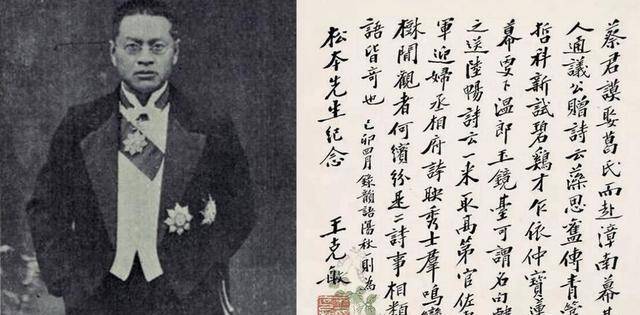 蔡君謨娶葛氏而赴漳南幕其
人通議公贈詩云藻思舊傳青管
哲科新試碧鷄才乍依仲寶蓮
幕更下温郎玉鏡臺可謂名句韓
之送陸暢詩云一来取高第官佐
軍迎婦丞相府誇映秀士羣鳴鸞
樹間觀者何繽紛是二詩事相類
語皆奇也 己卯四月錄韻語陽秋一則為
松本先生紀念 王克敏